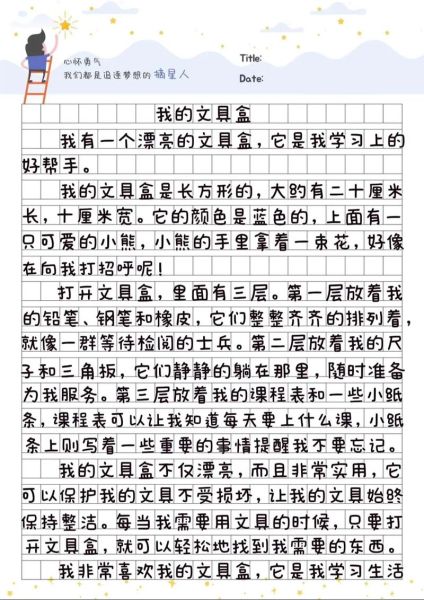 心怀勇气
我们都是追逐梦想的 摘星人
Title:
Date:
我的文具盒
我有一个漂亮的文具盒，它是我学习上的
好帮手。
我的文具盒是长方形的，大约有二十厘米
长，十厘米宽。它的颜色是蓝色的，上面有一
只可爱的小熊，小熊的手里拿着一束花，好像
在向我打招呼呢！
打开文具盒，里面有三层。第一层放着我
的铅笔、钢笔和橡皮，它们整整齐齐的排列着，
就像一群等待检阅的士兵。第二层放着我的尺
子和三角板，它们静静的躺在那里，随时准备
为我服务。第三层放着我的课程表和一些小纸
条，课程表可以让我知道每天要上什么课，小纸
条上则写着一些重要的事情提醒我不要忘记。
我的文具盒不仅漂亮，而且非常实用，它
可以保护我的文具不受损坏，让我的文具始终
保持整洁。每当我需要用文具的时候，只要打
开文具盒，就可以轻松地找到我需要的东西。
我非常喜欢我的文具盒，它是我学习生活